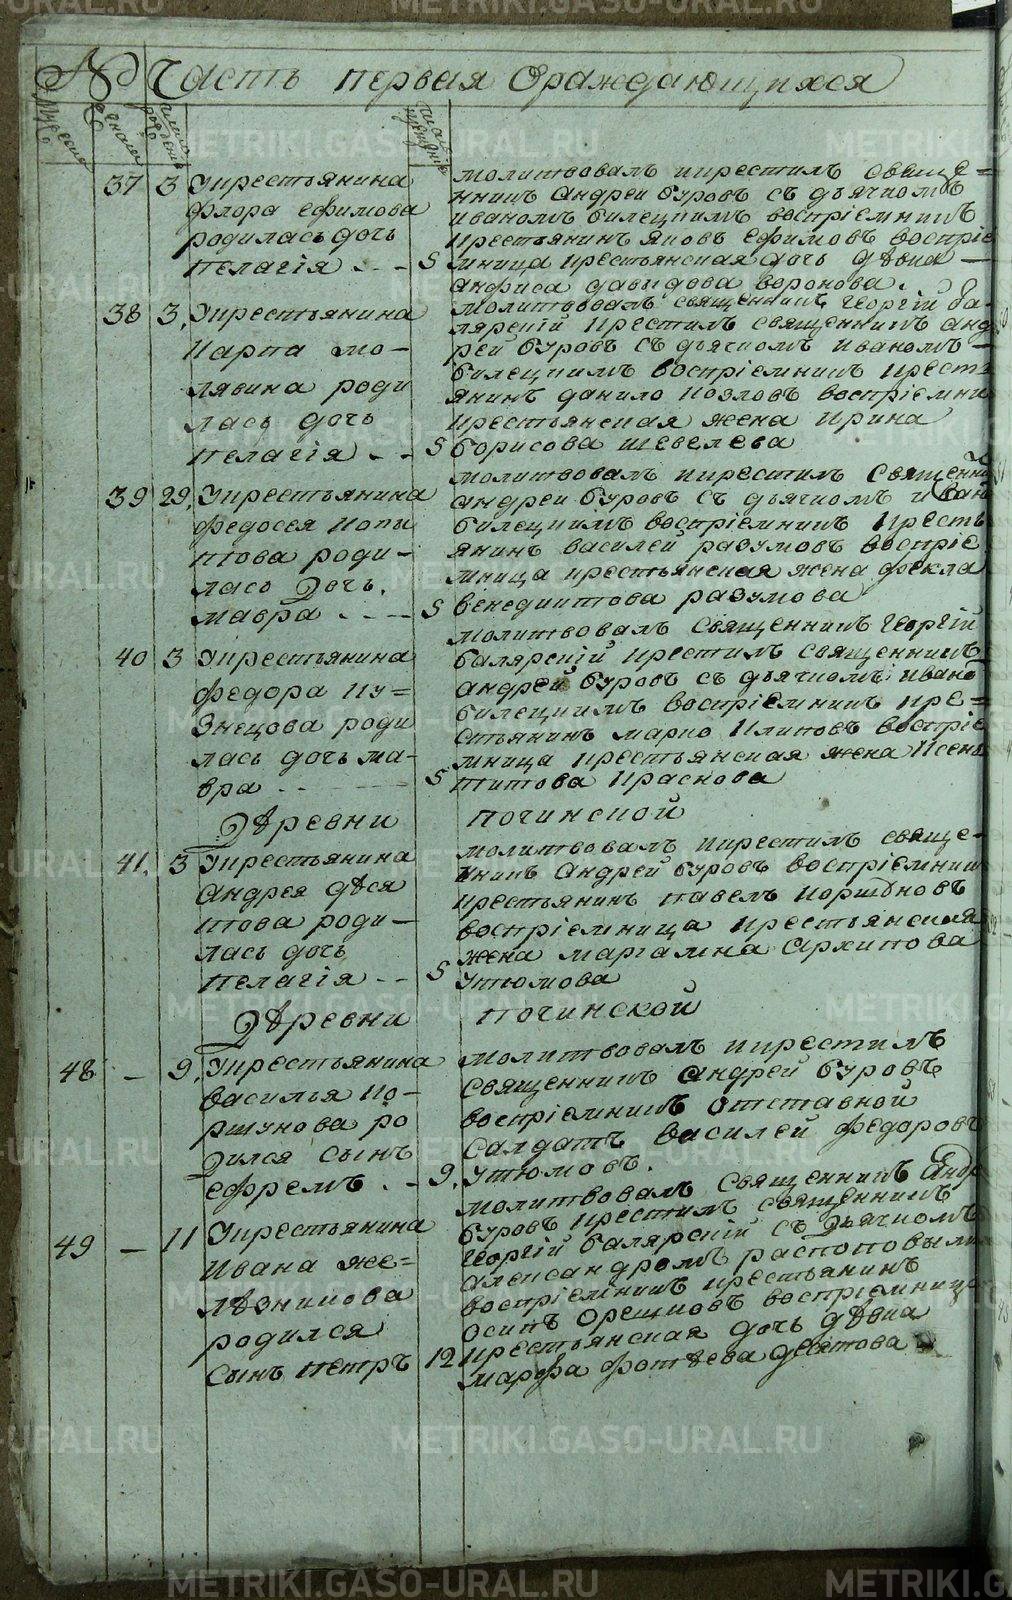 № Часть первая ораждающихся
Мужеска
женска
число рожденія
число крещенія
37 3 Укрестьянина
флора ефимова
родилась дочь
пелагія - - - 5
молитвовалъ икрестилъ свяще=
нникъ андрей буровъ съ дьячкомъ
иваномъ билецкимъ воспріемникъ
крестьянинъ яковъ ефимовъ воспріе
мница крестьянская дочь девка
анфиса давидова воронова.
38 3. Укрестьянина
карпа мо-
лявина роди
лась дочь
пелагія - - 5
молитвовалъ священникъ георгій ба-
лярскій крестилъ священникъ анд
рей буровъ съ дьячкомъ иваномъ -
билецкимъ воспріемникъ кресть
янинъ данило козловъ воспріемни
крестьянская жена ирина
борисова шевелева
39 29. Укрестьянина
федосея копы
това роди-
лась дочь.
мавра - - - - 5
молитвовалъ икрестилъ священни
андрей буровъ съ дьячкомъ иван
билецкимъ воспріемникъ кресть
янинъ василей разумовъ воспріе
мница крестьянская жена фекла
венедиктова разумова
40 3 Укрестьянина
федора ку=
знецова роди
лась дочь ма-
вра - - 5
молитвовалъ священникъ георгій
балярскій крестилъ священникъ
андрей буровъ съ дьячкомъ ивано
билецкимъ воспріемникъ кре=
стьянинъ марко клиповъ воспріе
мница крестьянская жена ксено
титова краснова
Деревни починской
41. 3 Укрестьянина
андрея деся
това роди-
лась дочь
пелагія - - 5
молитвовалъ икрестилъ свяще-
нникъ андрей буровъ воспріемник
крестьянинъ павелъ коршуновъ
воспріемница крестьянская
жена маріамна архипова
утюмова
Деревни починской
48 - 9. Укрестьянина
василья ко-
ршунова ро
дился сынъ
ефремъ. - 9.
молитвовалъ икрестилъ
священникъ андрей буровъ
воспріемникъ отставной
салдатъ василей федоровъ
утюмовъ.
49 - 11 Укрестьянина
ивана же=
лезникова
родился
сынъ петръ 12
молитвовалъ священникъ андр
буровъ крестилъ священникъ
георгій балярскій съ дьячкомъ
александромъ распоповым
воспріемникъ крестьянинъ
осипъ орешковъ воспріемница
крестьянская дочь девка
марфа фотеева десятова
METRIKI.GASO-URAL.RU